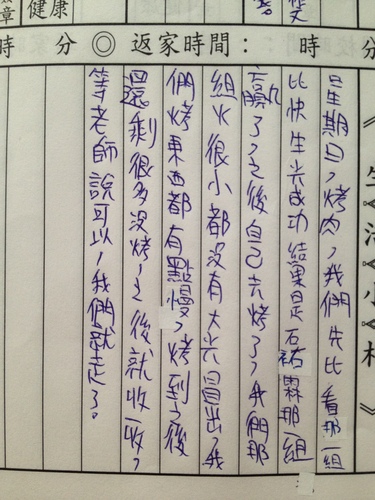 健康
時 分 ◎ 返家時間： 時 分
《生活小札》
星期日，烤肉，我們先比看那一組
比快生火成功結果是石祐霖那一組
贏了，之後自己去烤了，我們那
組火很小都沒有大火冒出，我
們烤東西都有點慢，烤到後
還剩很多沒烤，之後就收一收，
等老師說可以，我們就走了。